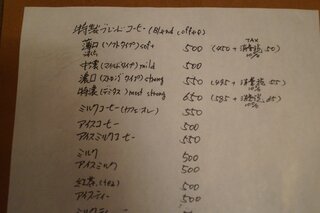 特製ブレンドコーヒー (Blend coffee)
薄口 (ソフトタイプ) soft 500 (450 + 消費税 50)
TAX 10%
中濃 (マイルドタイプ) mild 500
濃口 (ストロングタイプ) strong 550 (495 + 消費税 55)
10%
特濃 (デミタス) most strong 650 (585 + 消費税 65)
10%
ミルクコーヒー (カフェ・オレ) 550
アイスコーヒー 500
アイスミルクコーヒー 550
ミルク 500
アイスミルク 500
紅茶 500
アイスティー 500
ミルクティー